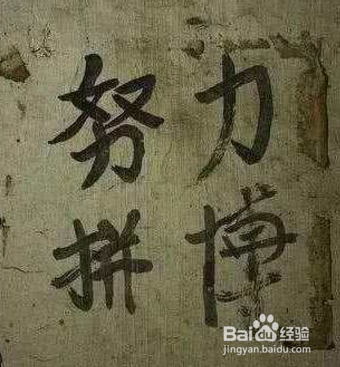 努力
拼博
Baidu经验
jingyan.baidu.com